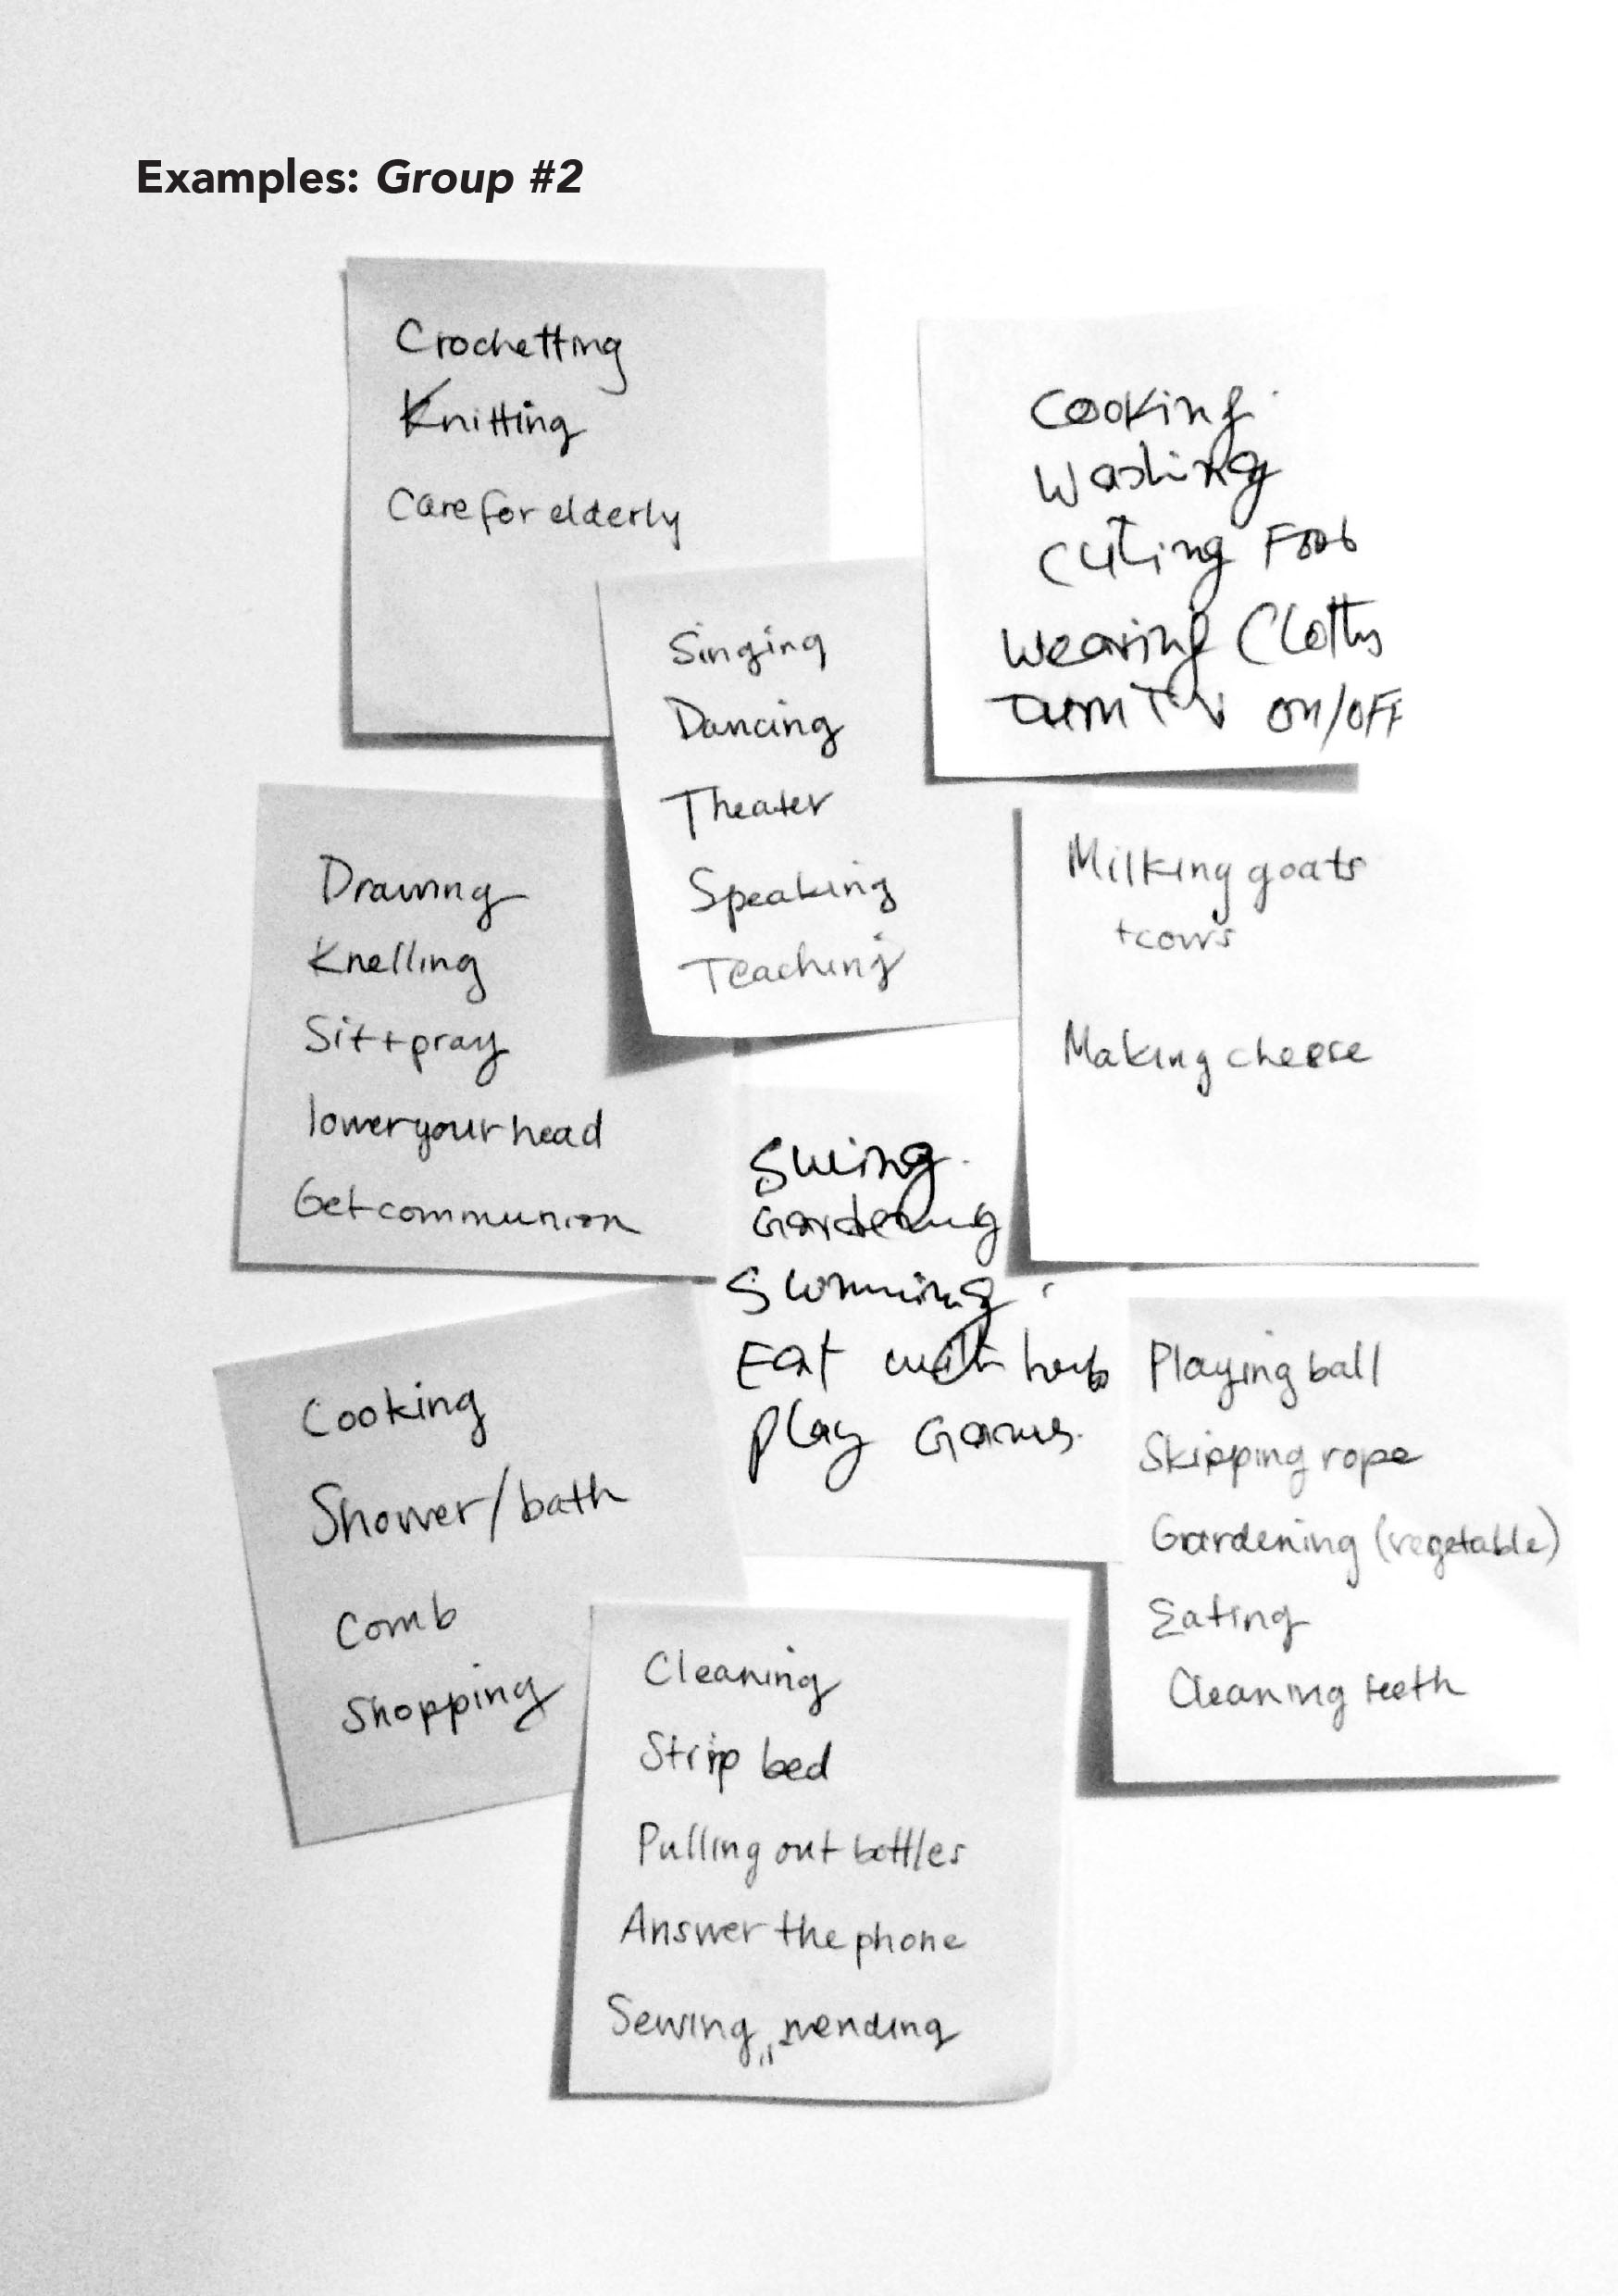 Examples: Group #2
Crochetting
Knitting
Care for elderly
Cooking
Washing
Cuting Food
Wearing Cloths
Turn TV on/OFF
Singing
Dancing
Theater
Speaking
Teaching
Milking goats
+cows
Making cheese
Drawing
Knelling
Sit + pray
lower your head
Get communion
Gardening
Eat with
Play
Playing ball
Skipping rope
Gardening (vegetable)
Eating
Cleaning teeth
Cooking
Shower/bath
Comb
Shopping
Cleaning
Strip bed
Pulling out bottles
Answer the phone
Sewing, mending